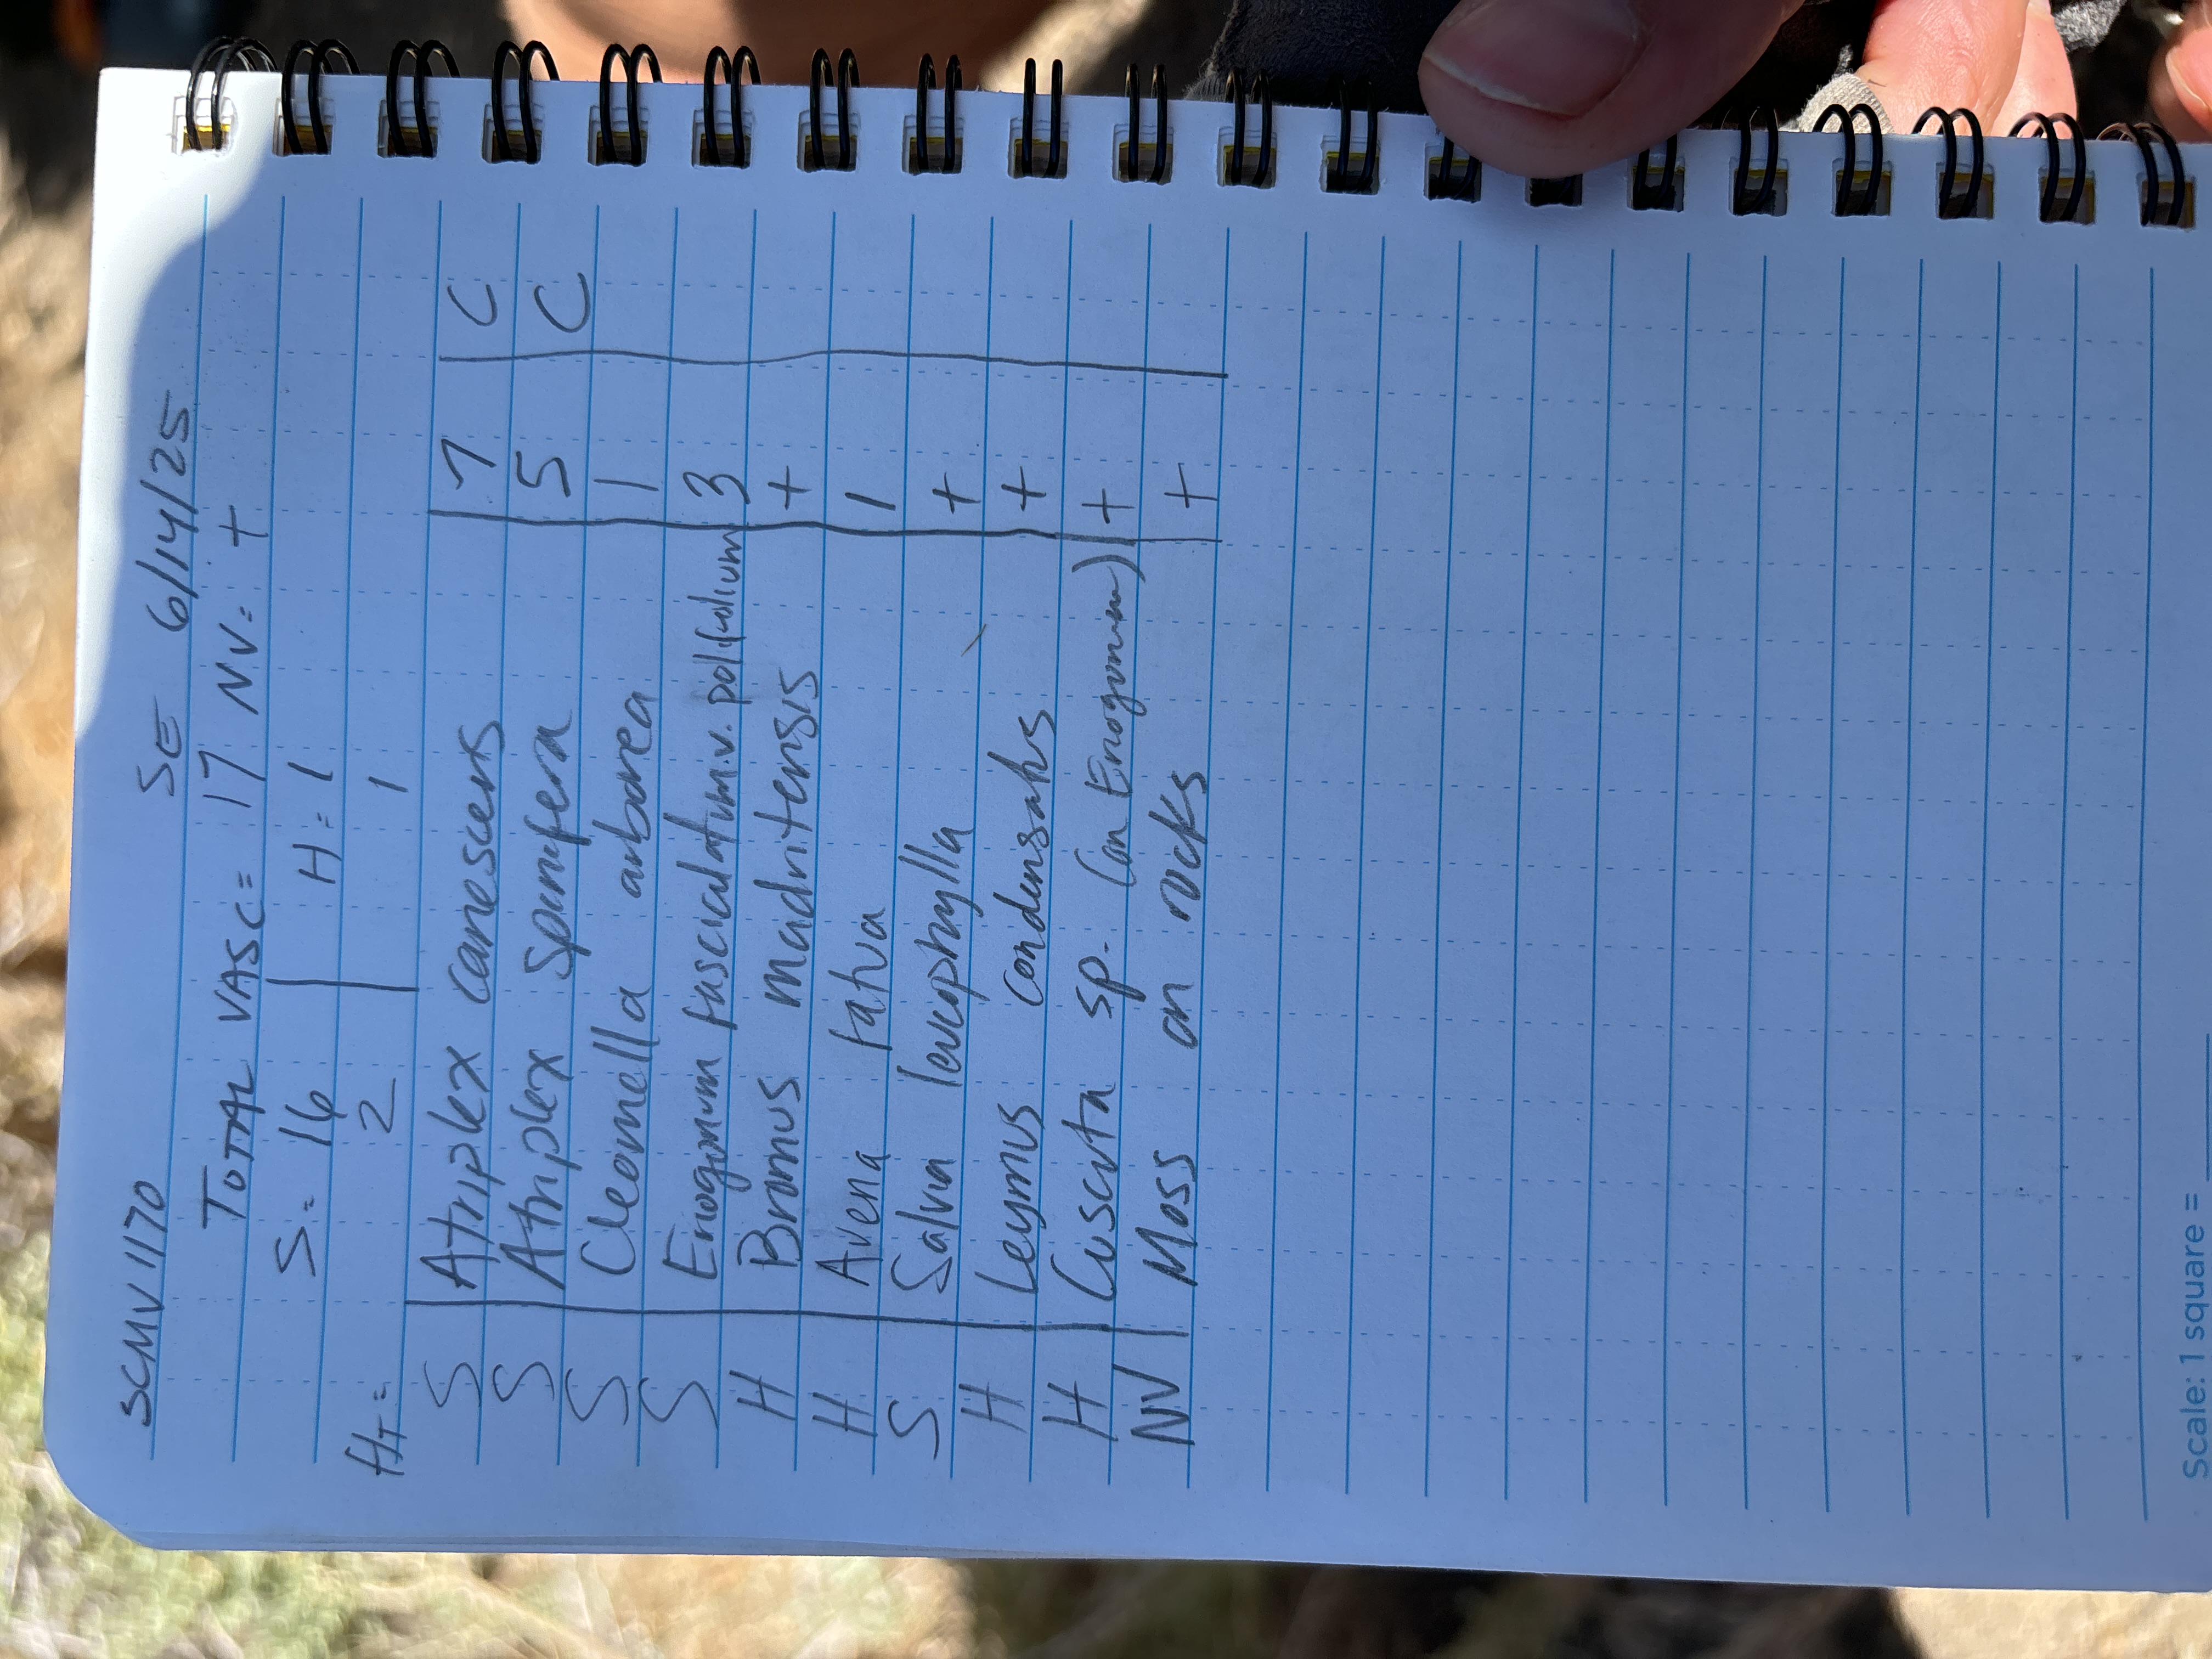 SCMV1170 SE 6/14/25
TOTAL VASC = 17 NV = +
S = 16 | H = 1
HT = 2 | 1
S | Atriplex canescens | 7 | C
S | Atriplex spinifera | 5 | C
S | Cleomella arborea | 1
S | Eriogonum fasciculatum v. polifolium | 3
H | Bromus madritensis | +
H | Avena fatua | 1
S | Salvia leucophylla | +
H | Leymus condensatus | +
H | Cuscuta sp. (on Eriogonum) | +
NV | Moss on rocks | +
Scale: 1 square =